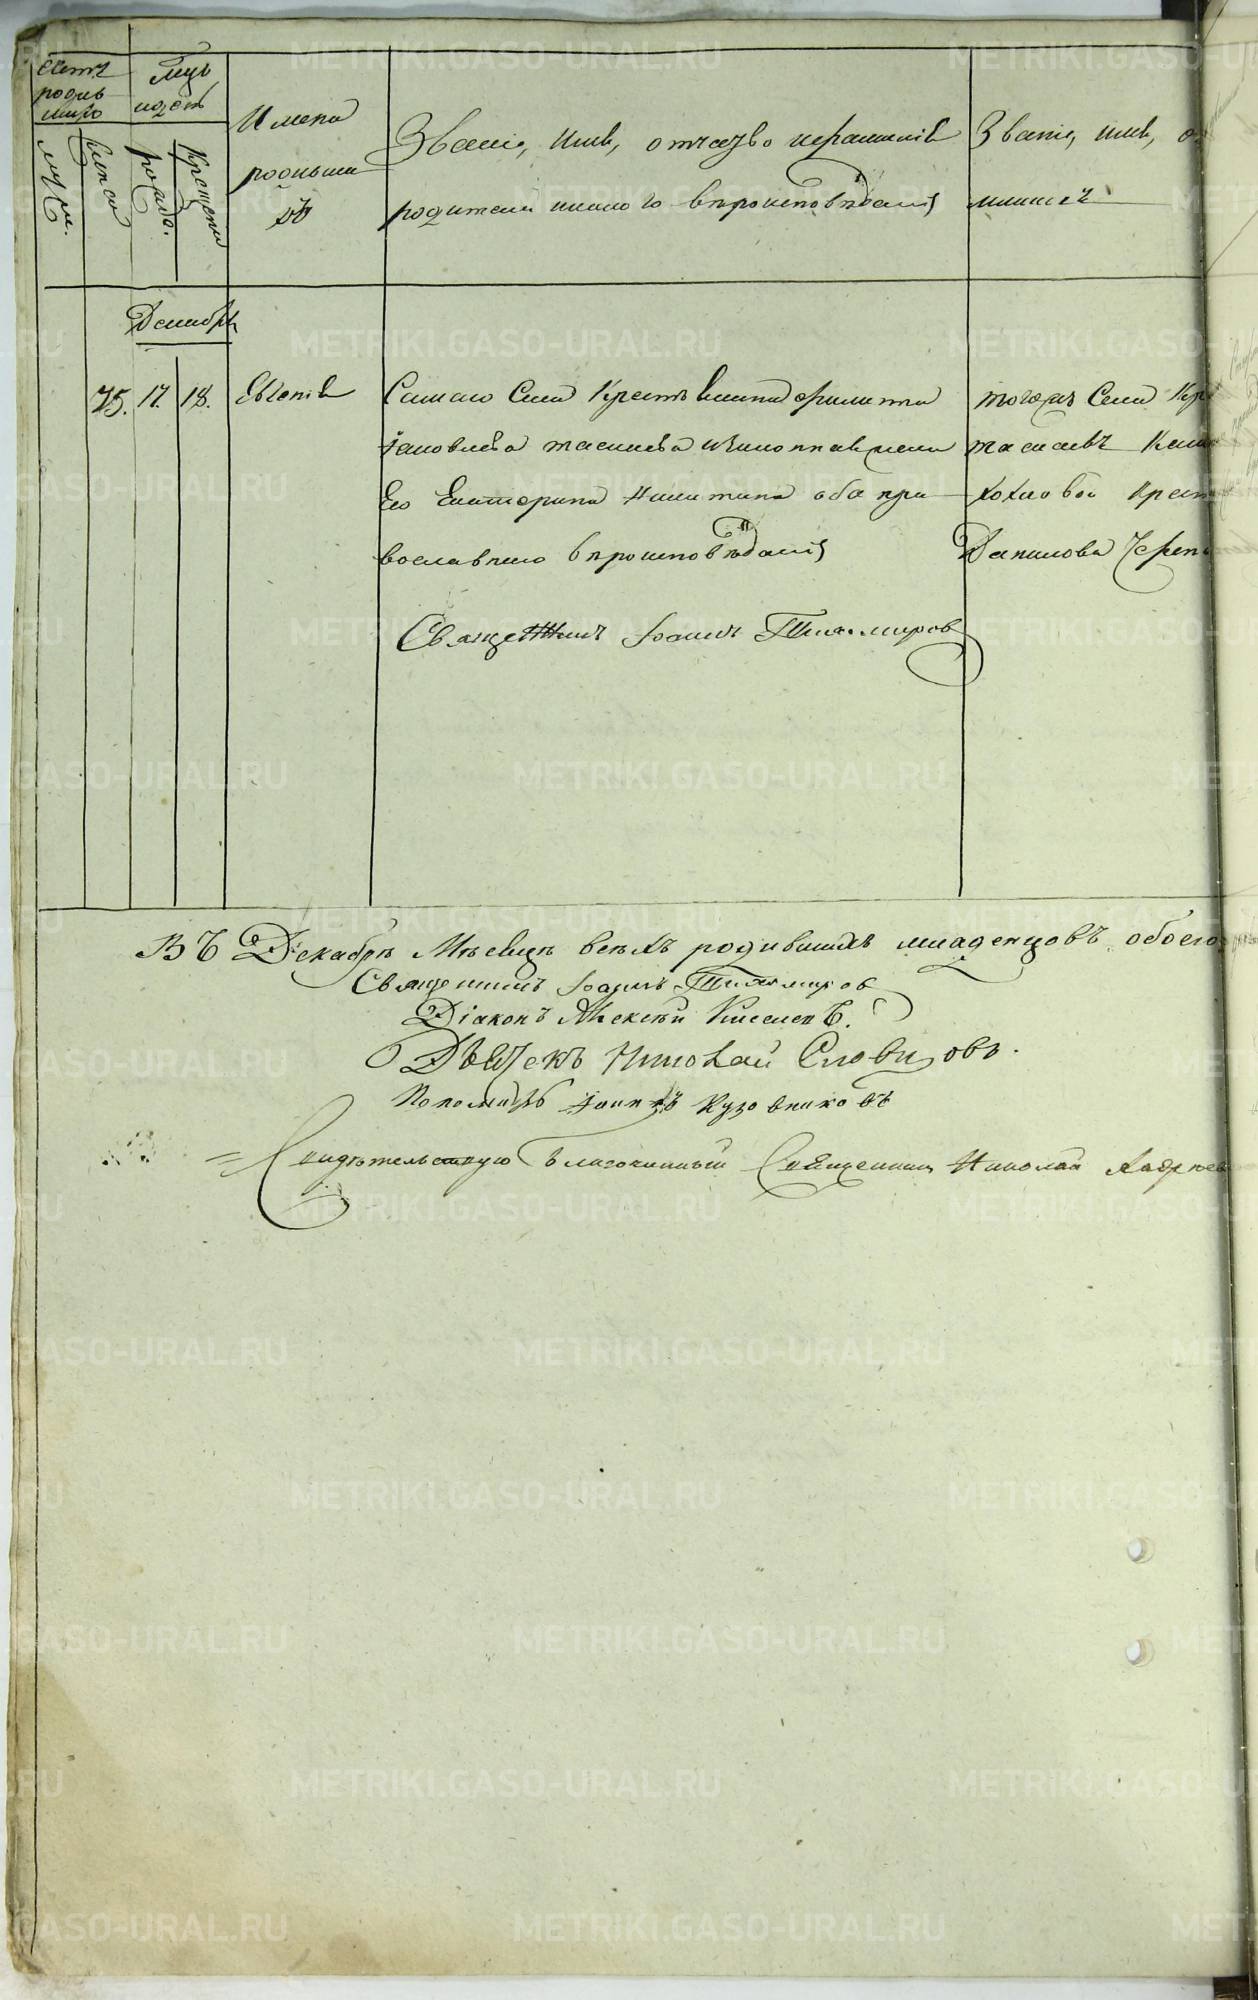 Счетъ родив шихъ
Мцъ и день
муж.
женск.
рожде.
крещения
Имена родивши хъ
Званіе, имя, отчество и фамилія
родителей и какого вѣроисповѣданія
Званіе, имя, о
Декабрь
75. 17. 18. Евгенія
Самаго Села Крестьянина Филипа
Іаковлева и законная жена
Его Екатерина Никитина оба пра
вославнаго вѣроисповѣданія
тогожъ Села Кр
Данилова Череп
Священникъ Іоаннъ Тихомировъ
Въ Декабрѣ Мѣсяцѣ всѣхъ родившихъ младенцовъ обоего
Священникъ Іоаннъ Тихомировъ
Діаконъ Алексѣй Киселевъ.
Дьячекъ Николай Словцовъ.
Пономарь Іоаннъ Кузовниковъ
Свидѣтельствую Благочинный Священникъ Николай Андреев
METRIKI.GASO-URAL.RU